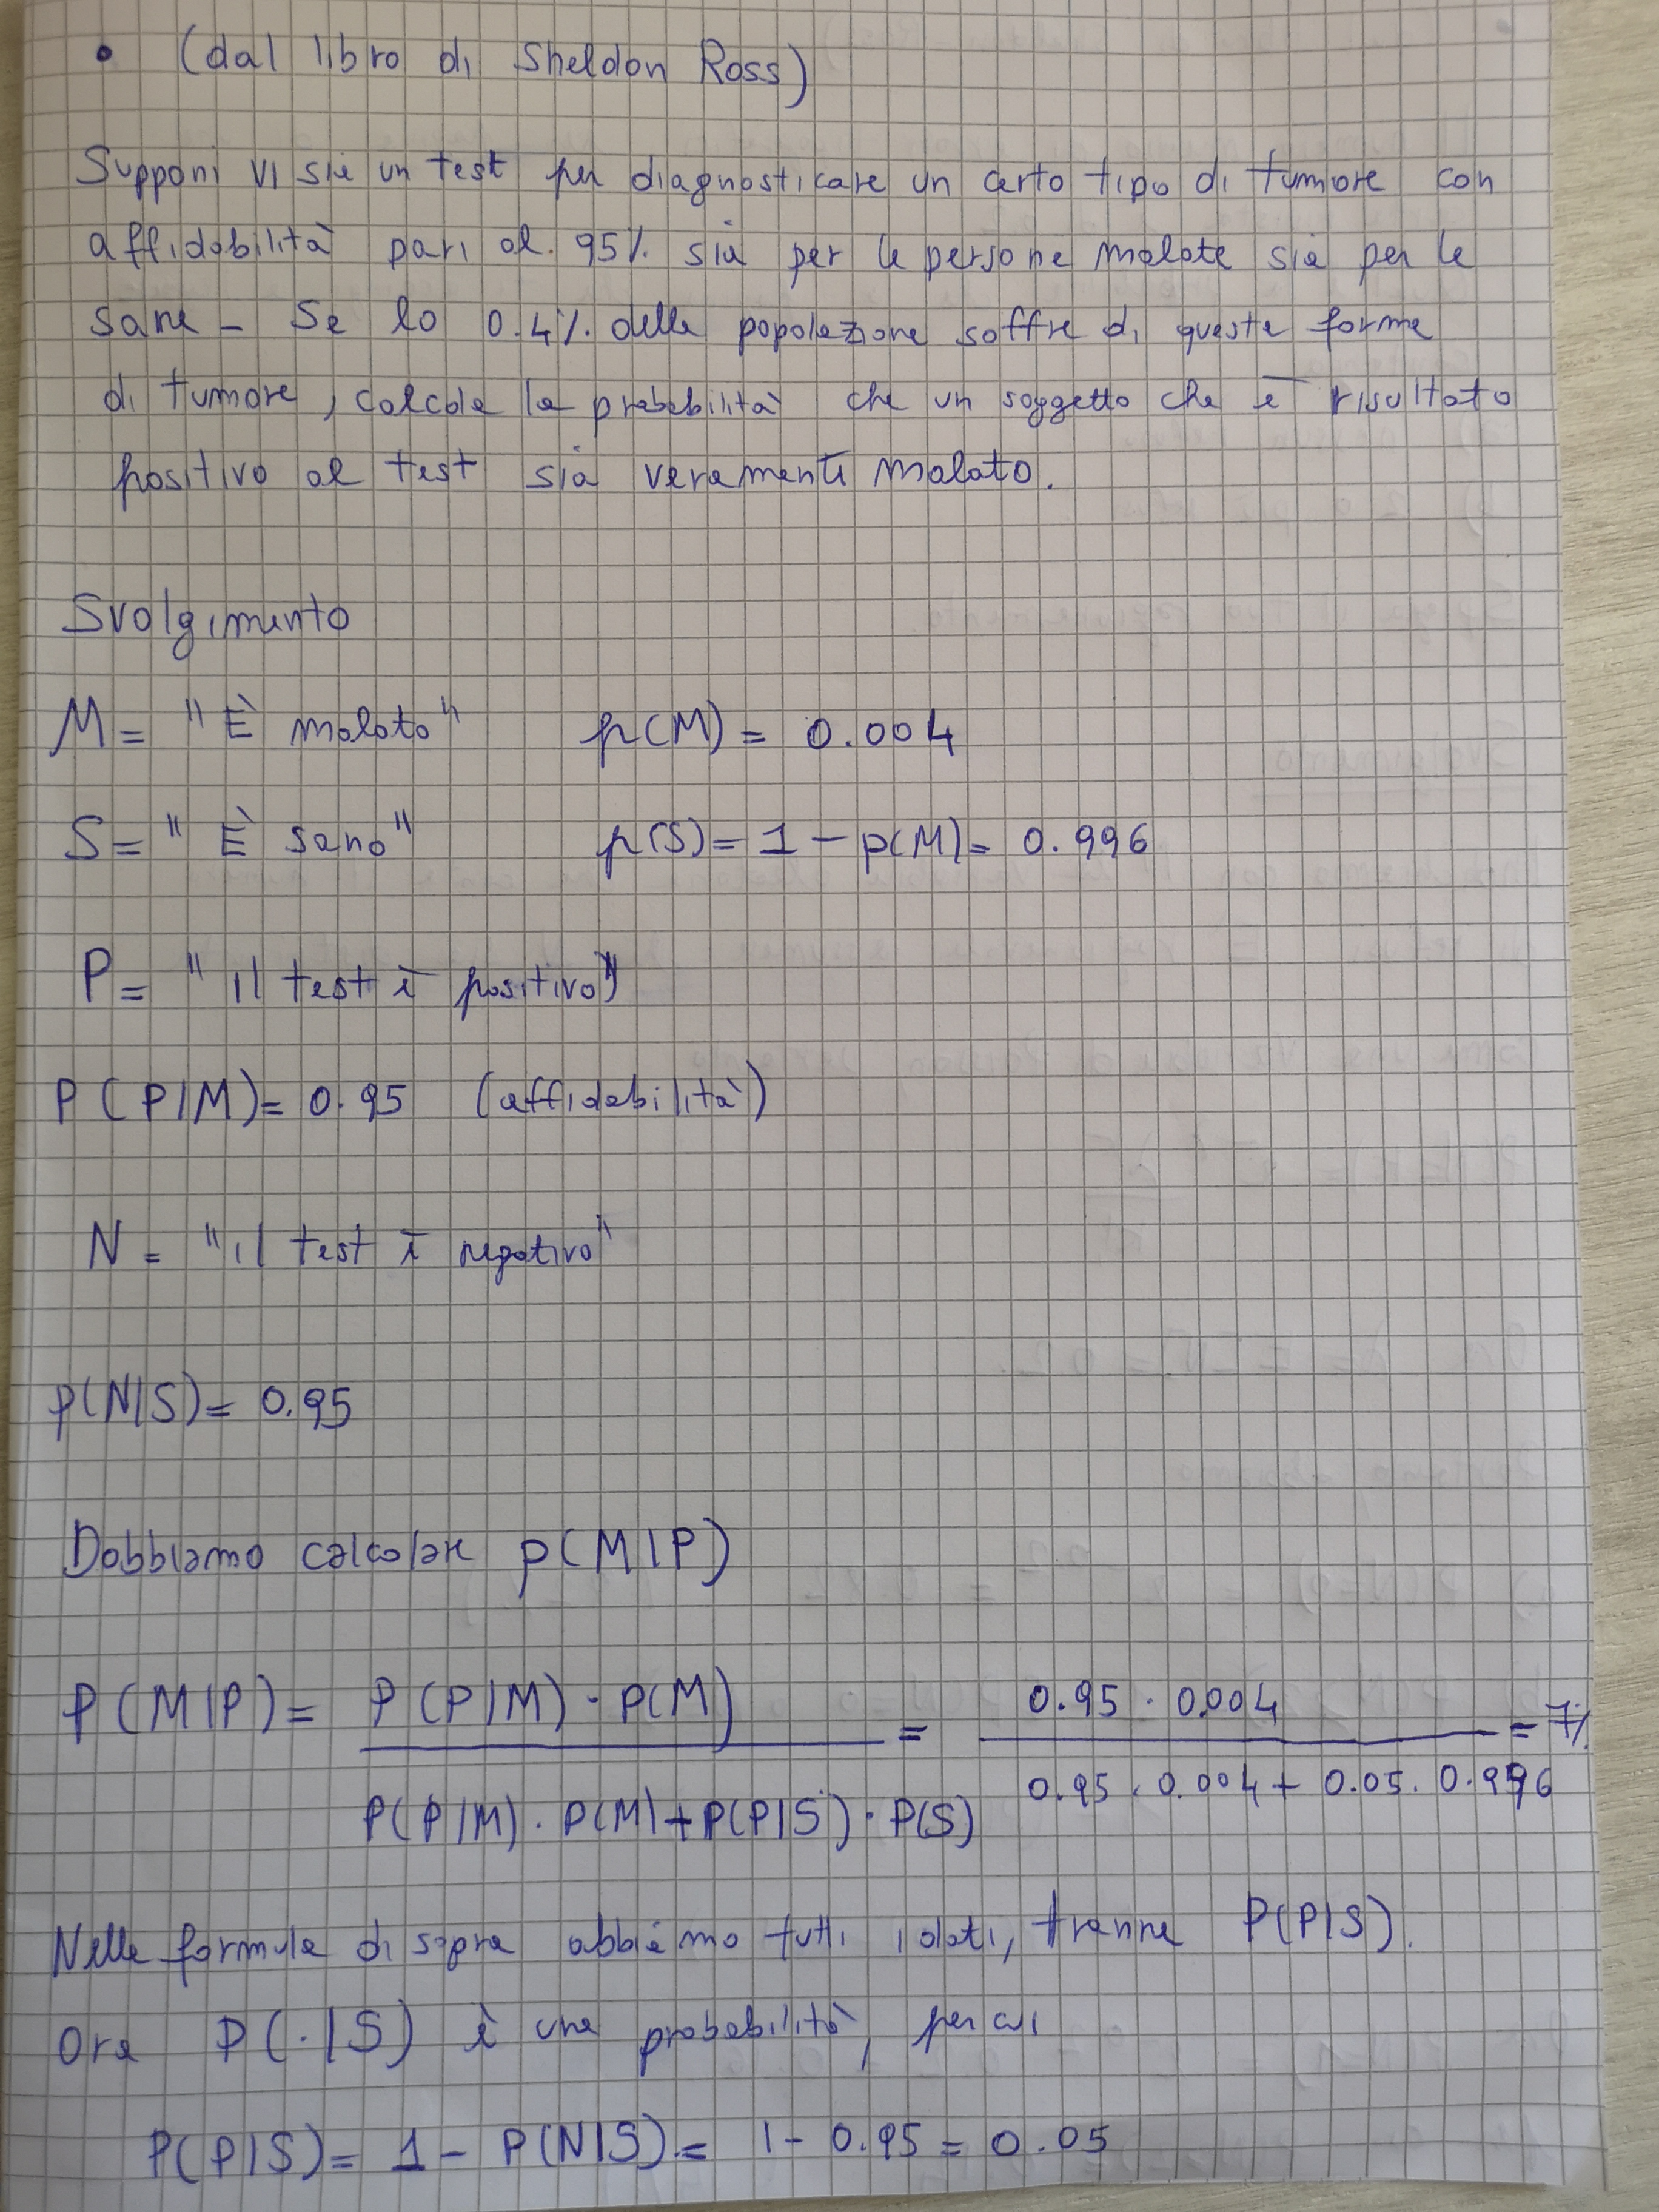 • (dal libro di Sheldon Ross)
Supponi vi sia un test per diagnosticare un certo tipo di tumore con
affidabilità pari al 95% sia per le persone malate sia per le
sane - Se lo 0.4% della popolazione soffre di questa forma
di tumore, calcola la probabilità che un soggetto che è risultato
positivo al test sia veramente malato.
Svolgimento
M = "È malato" p(M) = 0.004
S = "È sano" p(S) = 1 - p(M) = 0.996
P = "il test è positivo"
P(P|M) = 0.95 (affidabilità)
N = "il test è negativo"
p(N|S) = 0.95
Dobbiamo calcolare p(M|P)
P(M|P) = P(P|M) · P(M) / P(P|M) · P(M) + P(P|S) · P(S) = 0.95 · 0.004 / 0.95 · 0.004 + 0.05 · 0.996 = 7%
Nella formula di sopra abbiamo tutti i dati, tranne P(P|S).
Ora P(·|S) è una probabilità, per cui
P(P|S) = 1 - P(N|S) = 1 - 0.95 = 0.05